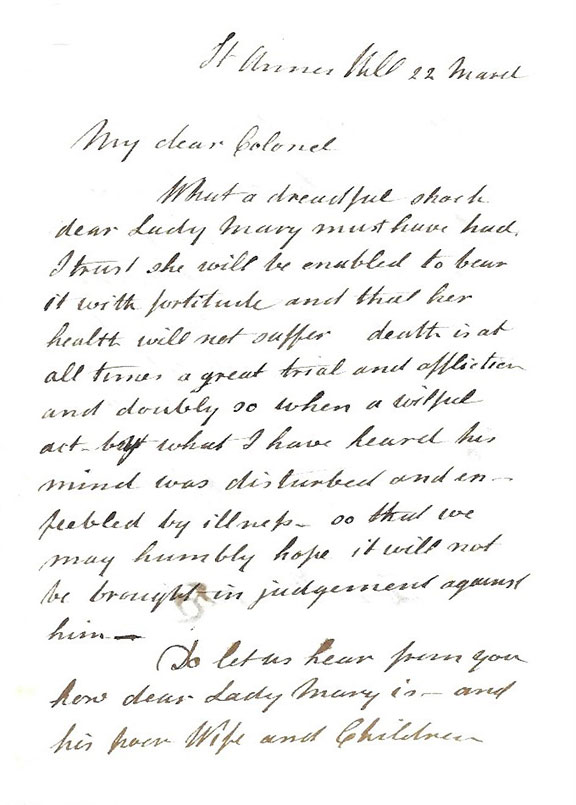 St Annes Hill 22 March
My dear Colonel
What a dreadful shock
dear Lady Mary must have had.
I trust she will be enabled to bear
it with fortitude and that her
health will not suffer death is at
all times a great trial and affliction
and doubly so when a wilful
act - by what I have heard his
mind was disturbed and en-
feebled by illness - so that we
may humbly hope it will not
be brought in judgement against
him -
Do let us hear from you
how dear Lady Mary is - and
his poor Wife and Children